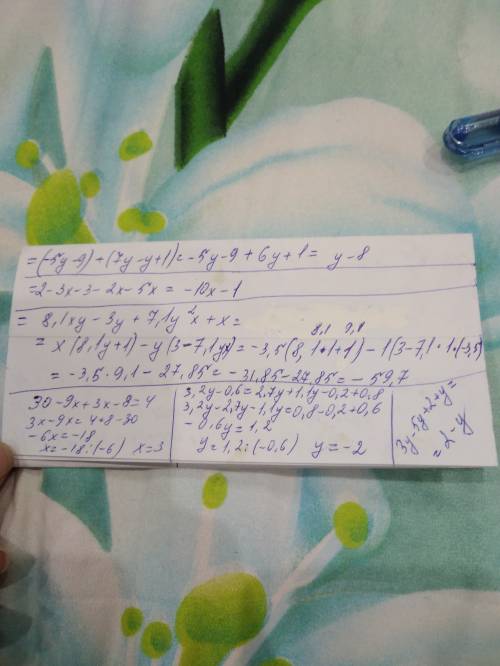 = (-5y-9)+(7y-y+1)= -5y-9+6y+1= y-8
=2-3x-3-2x-5x = -10x-1
= 8,1xy-3y+7,1y²x+x=
8,1 9,1
= x(8,1y+1)-y(3-7,1yx)=-3,5(8,1·1+1)-1(3-7,1·1·(-3,5)
= -3,5·9,1-27,85= -31,85-27,85=-59,7
30-9x+3x-8=4
3x-9x=4+8-30
-6x=-18
x=-18:(-6) x=3
3,2y-0,6=2,7y+1,1y-0,2+0,8
3,2y-2,7y-1,1y=0,8-0,2+0,6
-0,6y=1,2
y=1,2:(-0,6) y=-2
3y-5y+2+y=
=2-y